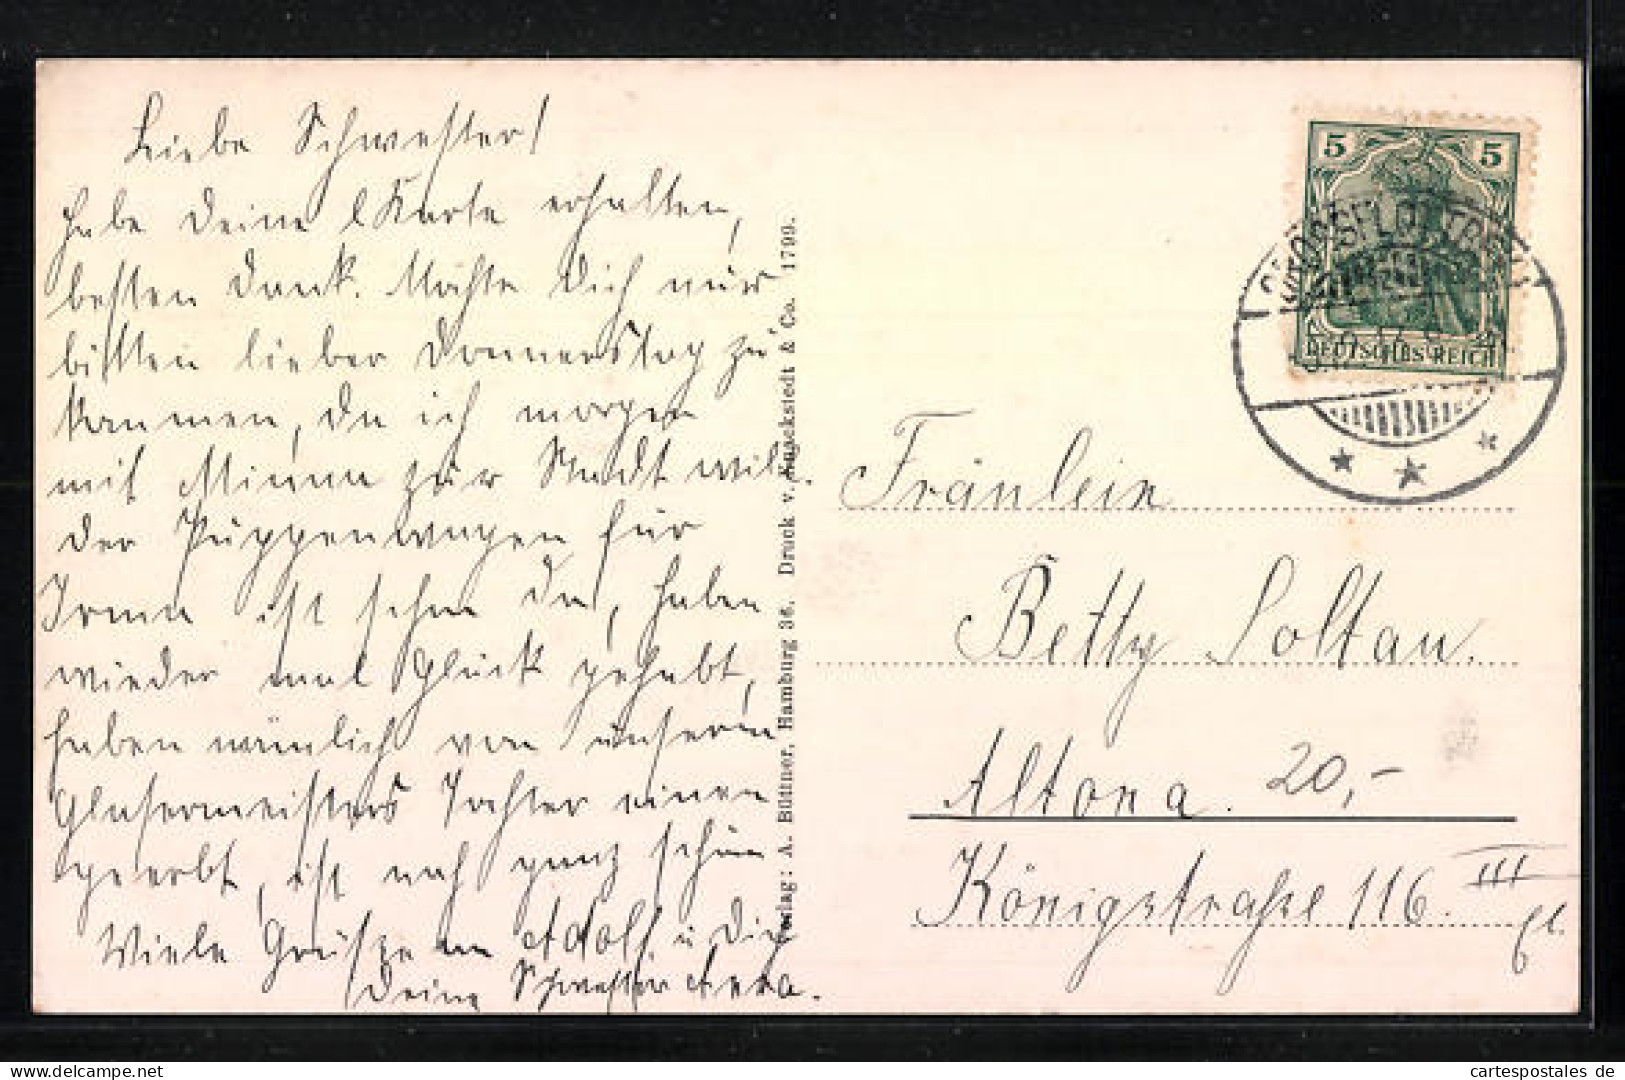 Liebe Schwester!
habe Deine l Karte erhalten,
besten Dank. Möchte Dich nur
bitten lieber Donnerstag zu
kommen, da ich morgen
mit Minna zur Stadt will.
Der Puppenwagen für
Irma ist schon da, haben
wieder mal Glück gehabt,
haben nämlich von unserm
Glasermeisters Tochter einen
geerbt, ist noch ganz schön
Viele Grüsze an Adolf u Dich
Deine Schwester Anna.
Verlag: A. Büttner, Hamburg 36. Druck v. Knackstedt & Co. 1799.
5 5
DEUTSCHES REICH
GROSSFLOTTBEK
Fräulein
Betty Soltau.
Altona. 20,-
Königstraße 116 III
Et.
cartespostales de